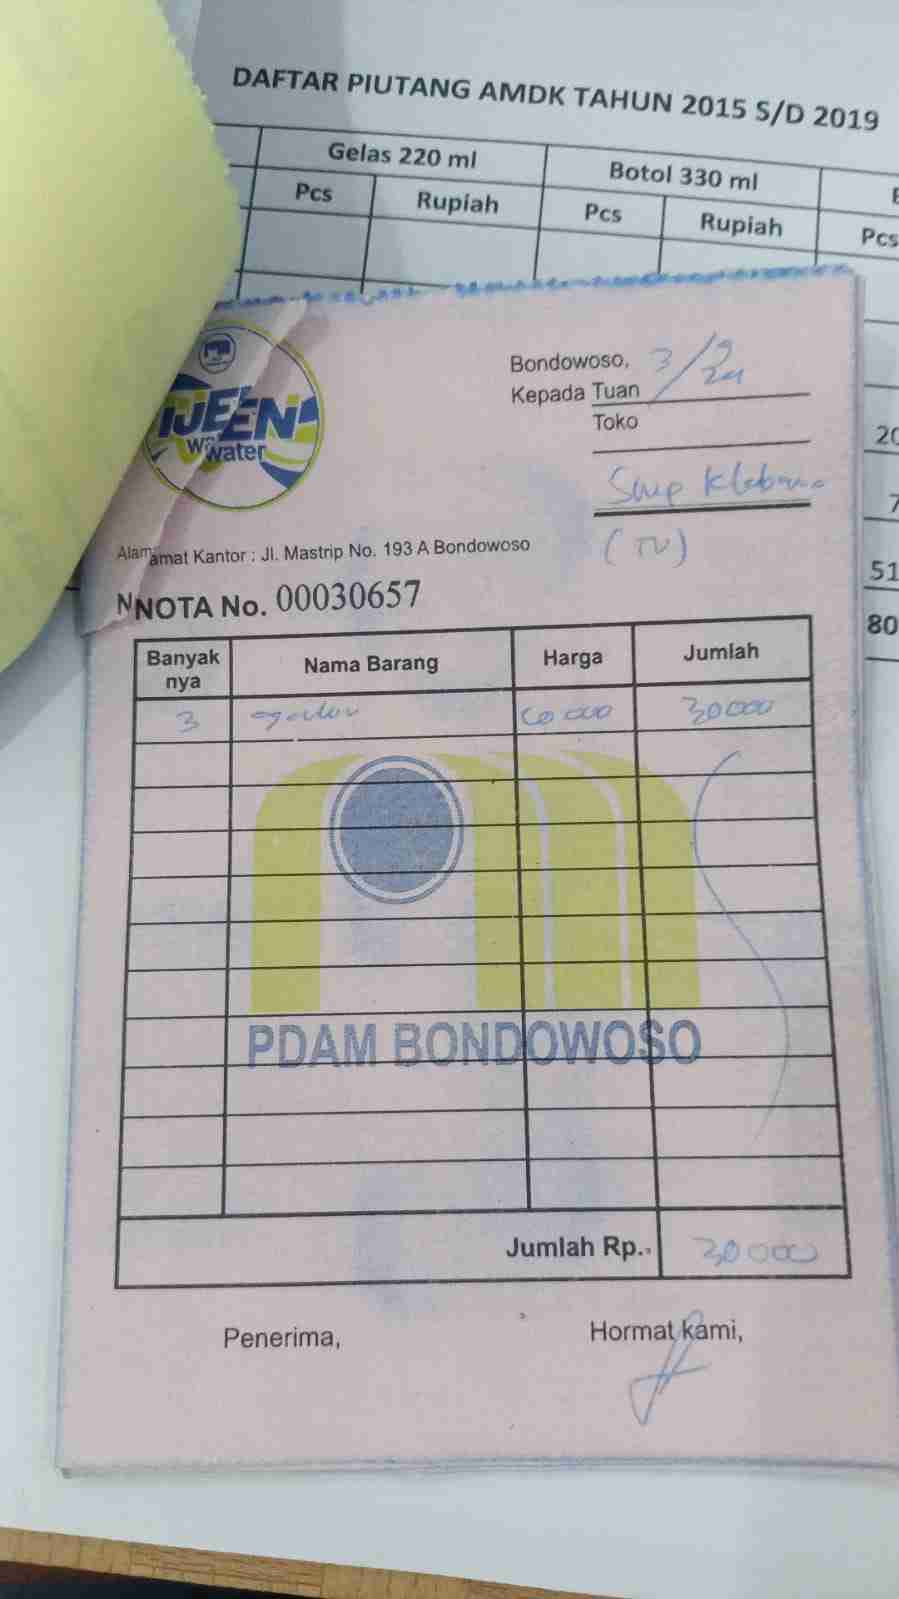 DAFTAR PIUTANG AMDK TAHUN 2015 S/D 2019
Gelas 220 ml Botol 330 ml
Pcs Rupiah Pcs Rupiah Pcs
water
Bondowoso, 3/9/24
Kepada Tuan
Toko
(TU)
Alamat Kantor : Jl. Mastrip No. 193 A Bondowoso
NOTA No. 00030657
Banyak nya Nama Barang Harga Jumlah
3 10 000 30 000
PDAM BONDOWOSO
Jumlah Rp. 30 000
Penerima, Hormat kami,